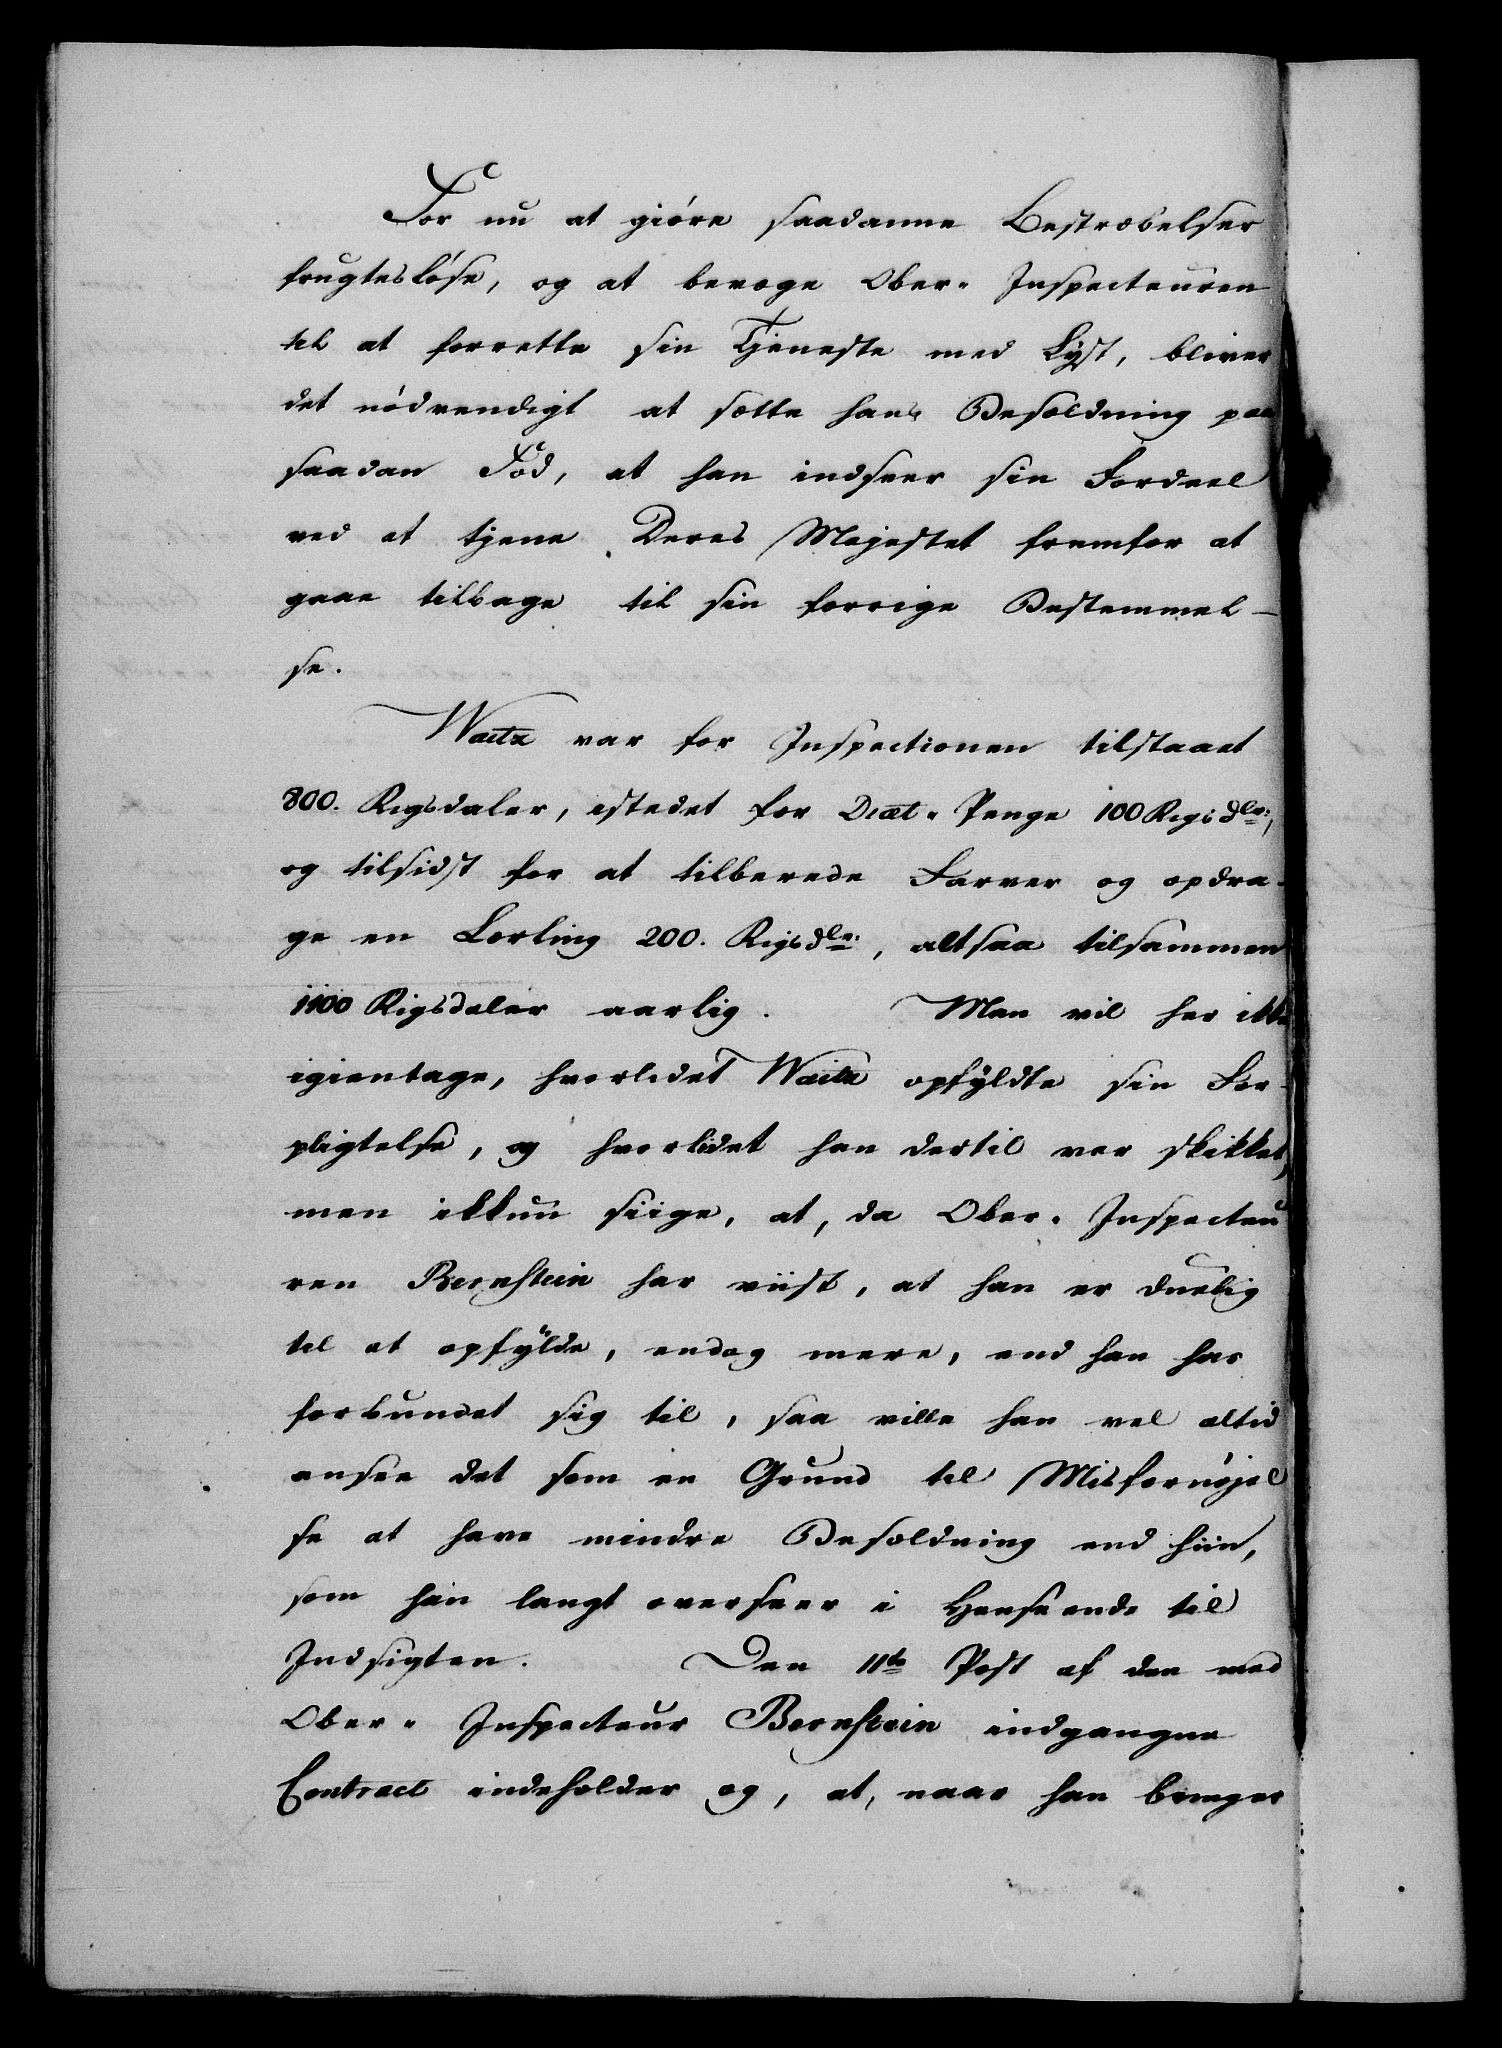 For nu at giöre saadanne Bestræbelser
frugteslöse, og at bevæge Ober-Inspecteuren
til at forrette sin Tjeneste med Lyst, bliver
det nödvendigt at sætte hans Besoldning paa
saadan Fod, at han indseer sin Fordeel
ved at tjene Deres Majestet fremfor at
gaae tilbage til sin forrige Bestemmel-
se.
Waitz var for Inspectionen tilstaaet
800. Rigsdaler, istedet for Diæt-Penge 100 Rigsdlr:,
og tilsidst for at tilberede Farver og opdra-
ge en Lærling 200. Rigsdlr:, altsaa tilsammen
1100 Rigsdaler aarlig. Man vil her ikke
igientage, hvorlidet Waitz opfyldte sin For-
pligtelse, og hvorlidet han dertil var skikket,
men ikkun siige, at, da Ober-Inspecteu
ren Bernstein har viist, at han er duelig
til at opfylde, endog mere, end han har
forbundet sig til, saa ville han vel altid
ansee det som en Grund til Misfornøjel
se at have mindre Besoldning end hiin,
som han langt overseer i Henseende til
Indsigten. Den 11te Post af den med
Ober-Inspecteur Bernstein indgangne
Contract indeholder og, at, naar han bringer